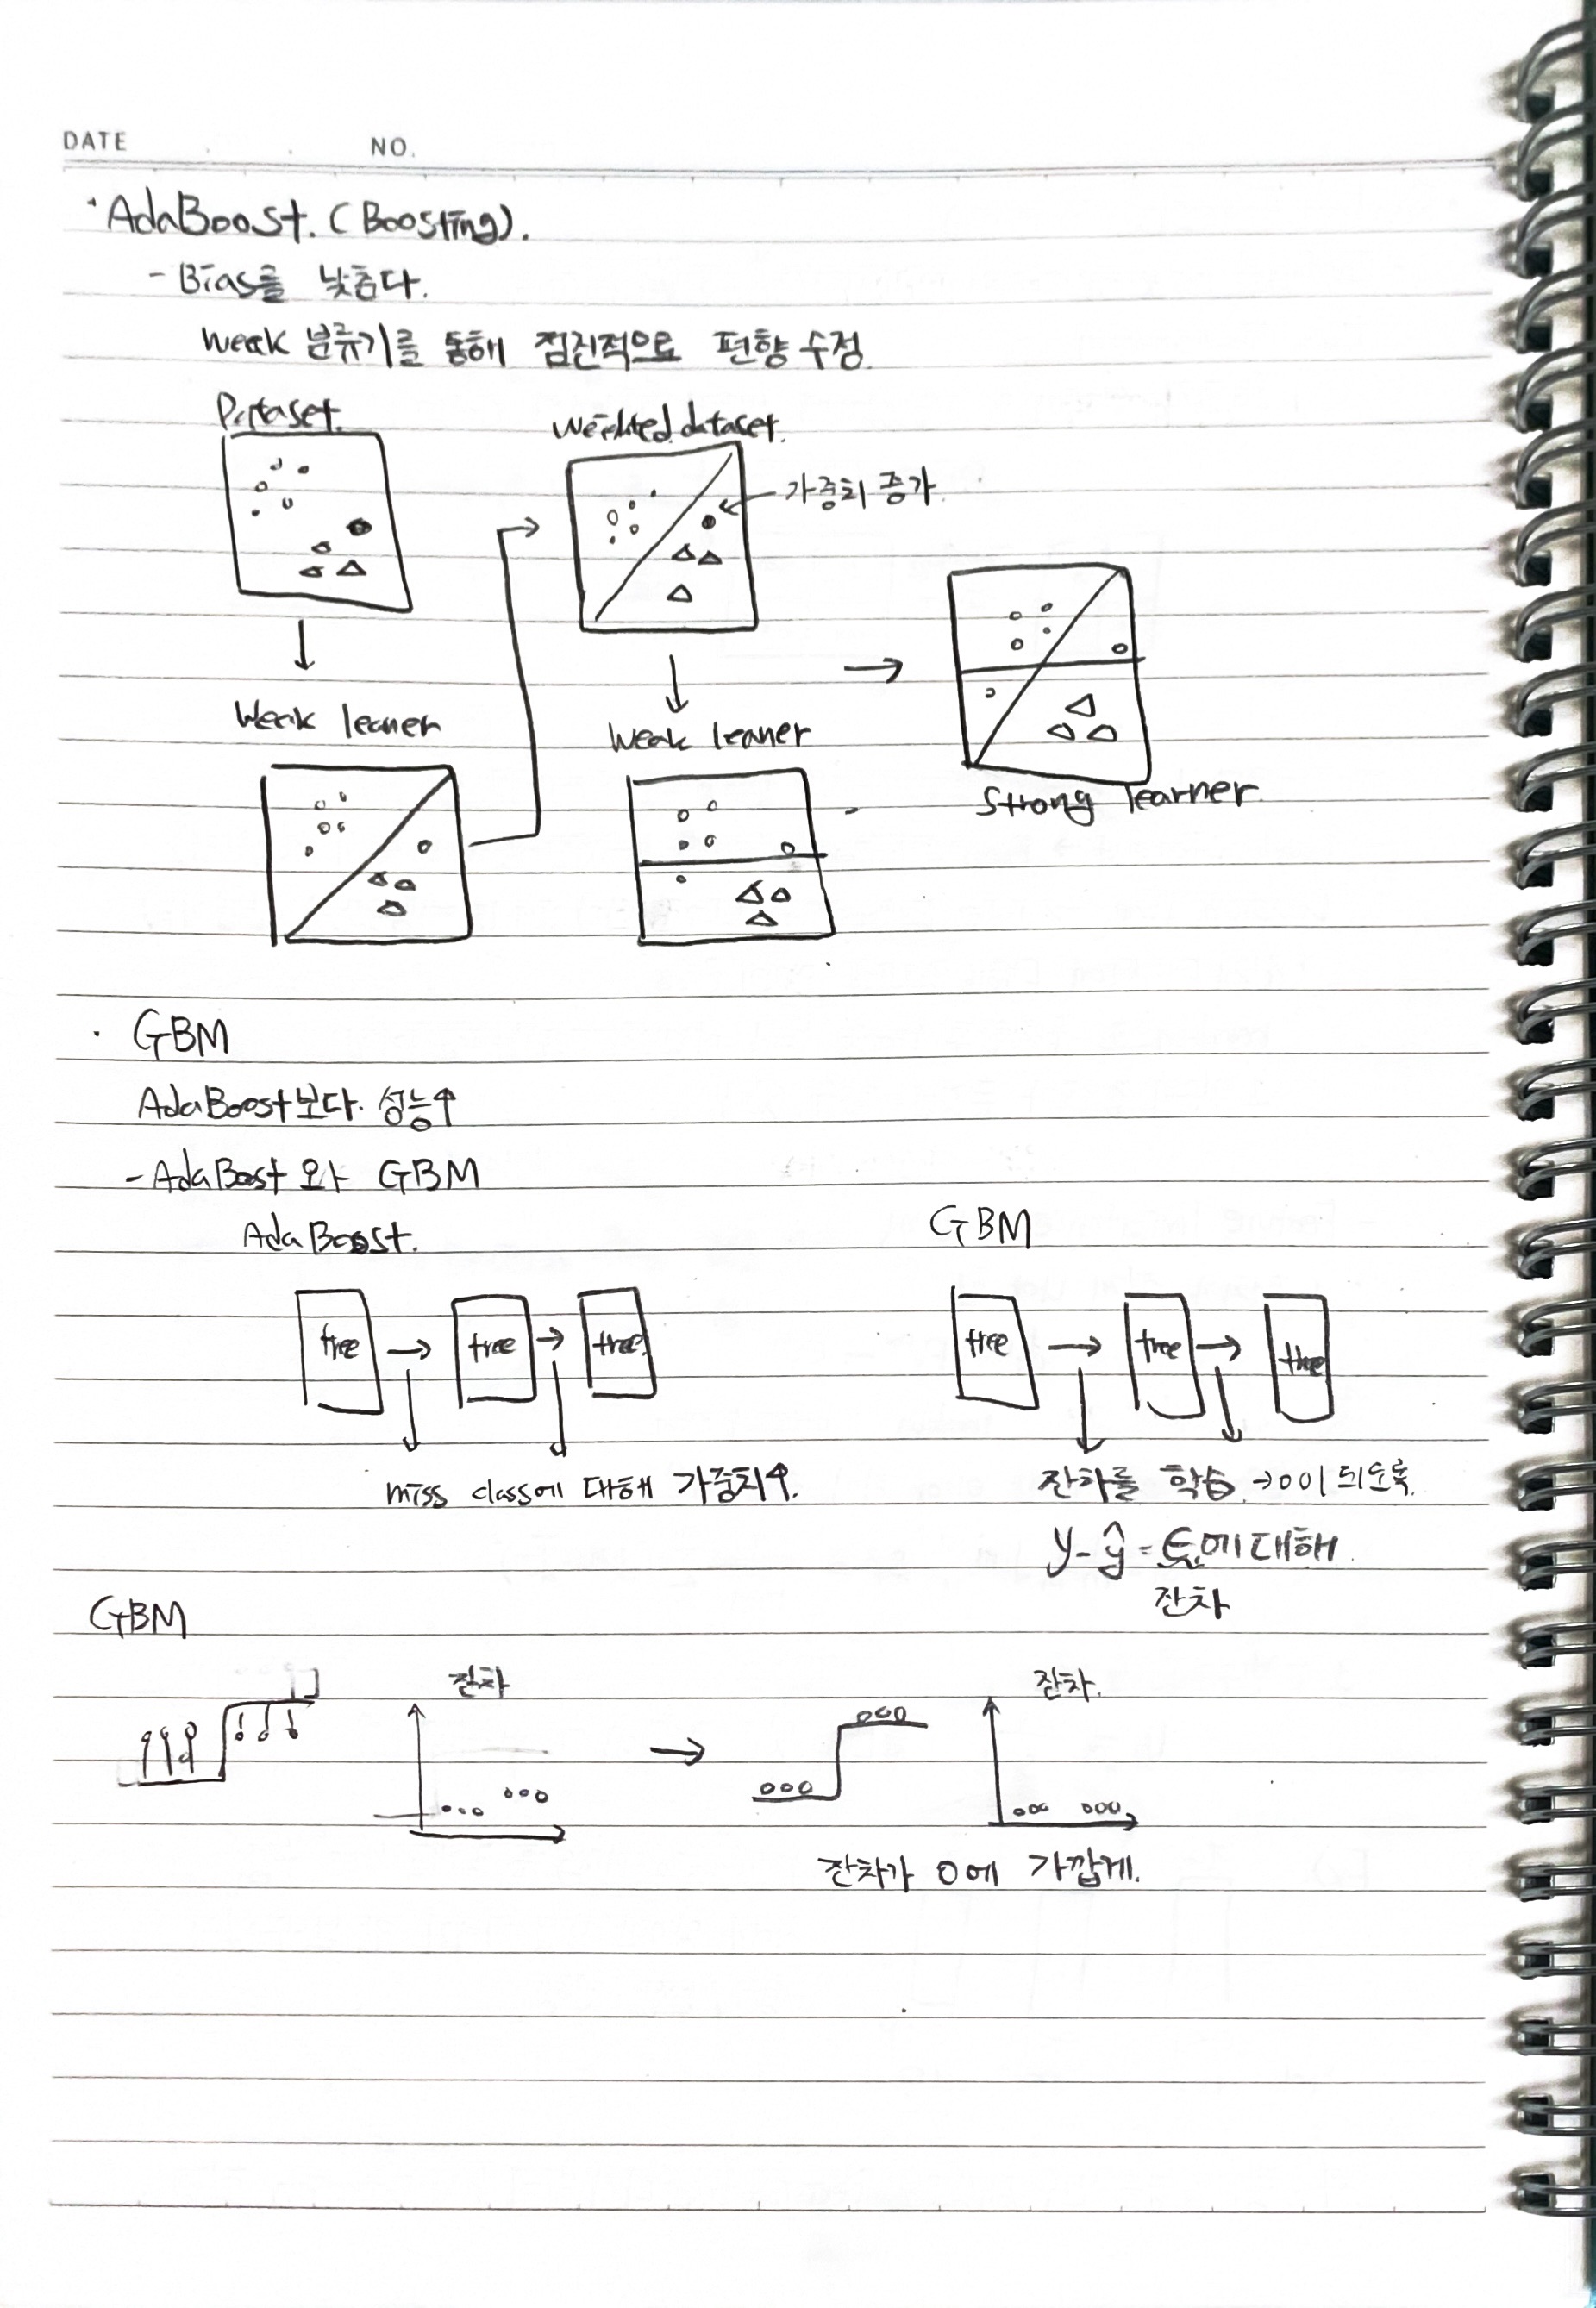 DATE . . NO.
· AdaBoost. (Boosting).
- Bias를 낮춘다.
weak 분류기를 통해 점진적으로 편향 수정.
Dataset.
weighted dataset.
가중치 증가
Weak leaner
weak leaner
Strong learner.
· GBM
AdaBoost보다. 성능↑
- AdaBoost 와 GBM
AdaBoost.
GBM
tree → tree → tree
tree → tree → tree
miss class에 대해 가중치↑.
잔차를 학습. → 0이 되도록.
y - ŷ = ε에 대해.
잔차
GBM
잔차
→
잔차.
잔차가 0에 가깝게.